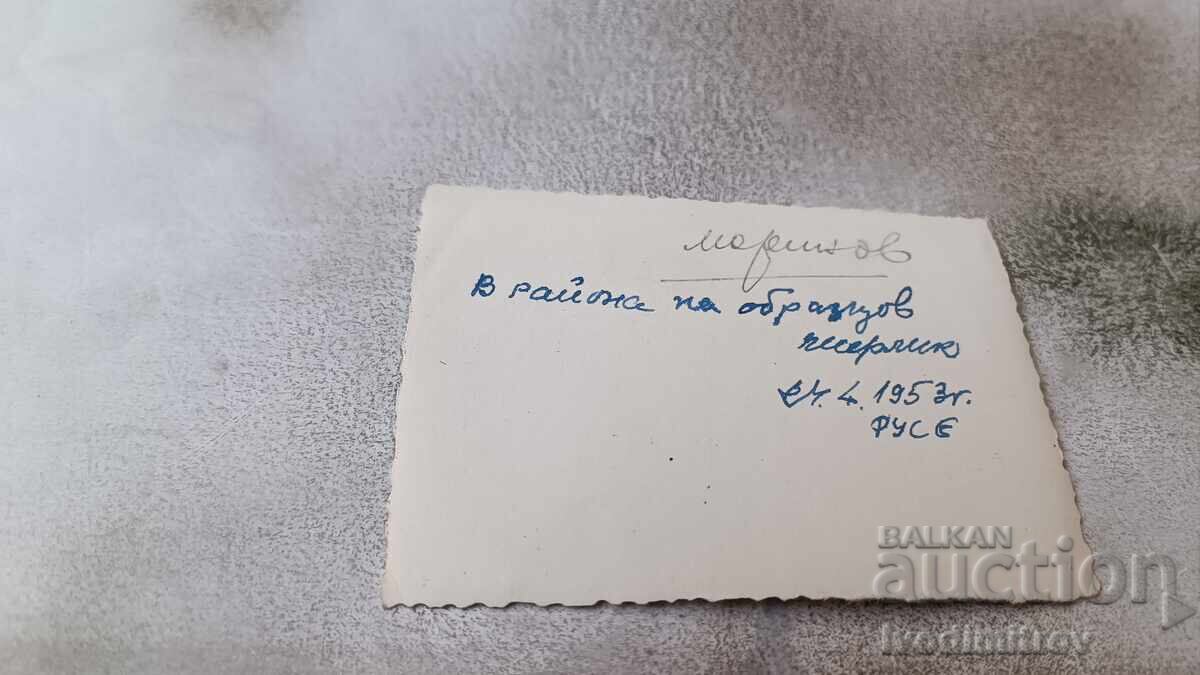 Маринов
В района на образцов
чифлик
24.4.1953г.
РУСЕ
BALKAN
auction
ivodimitrov